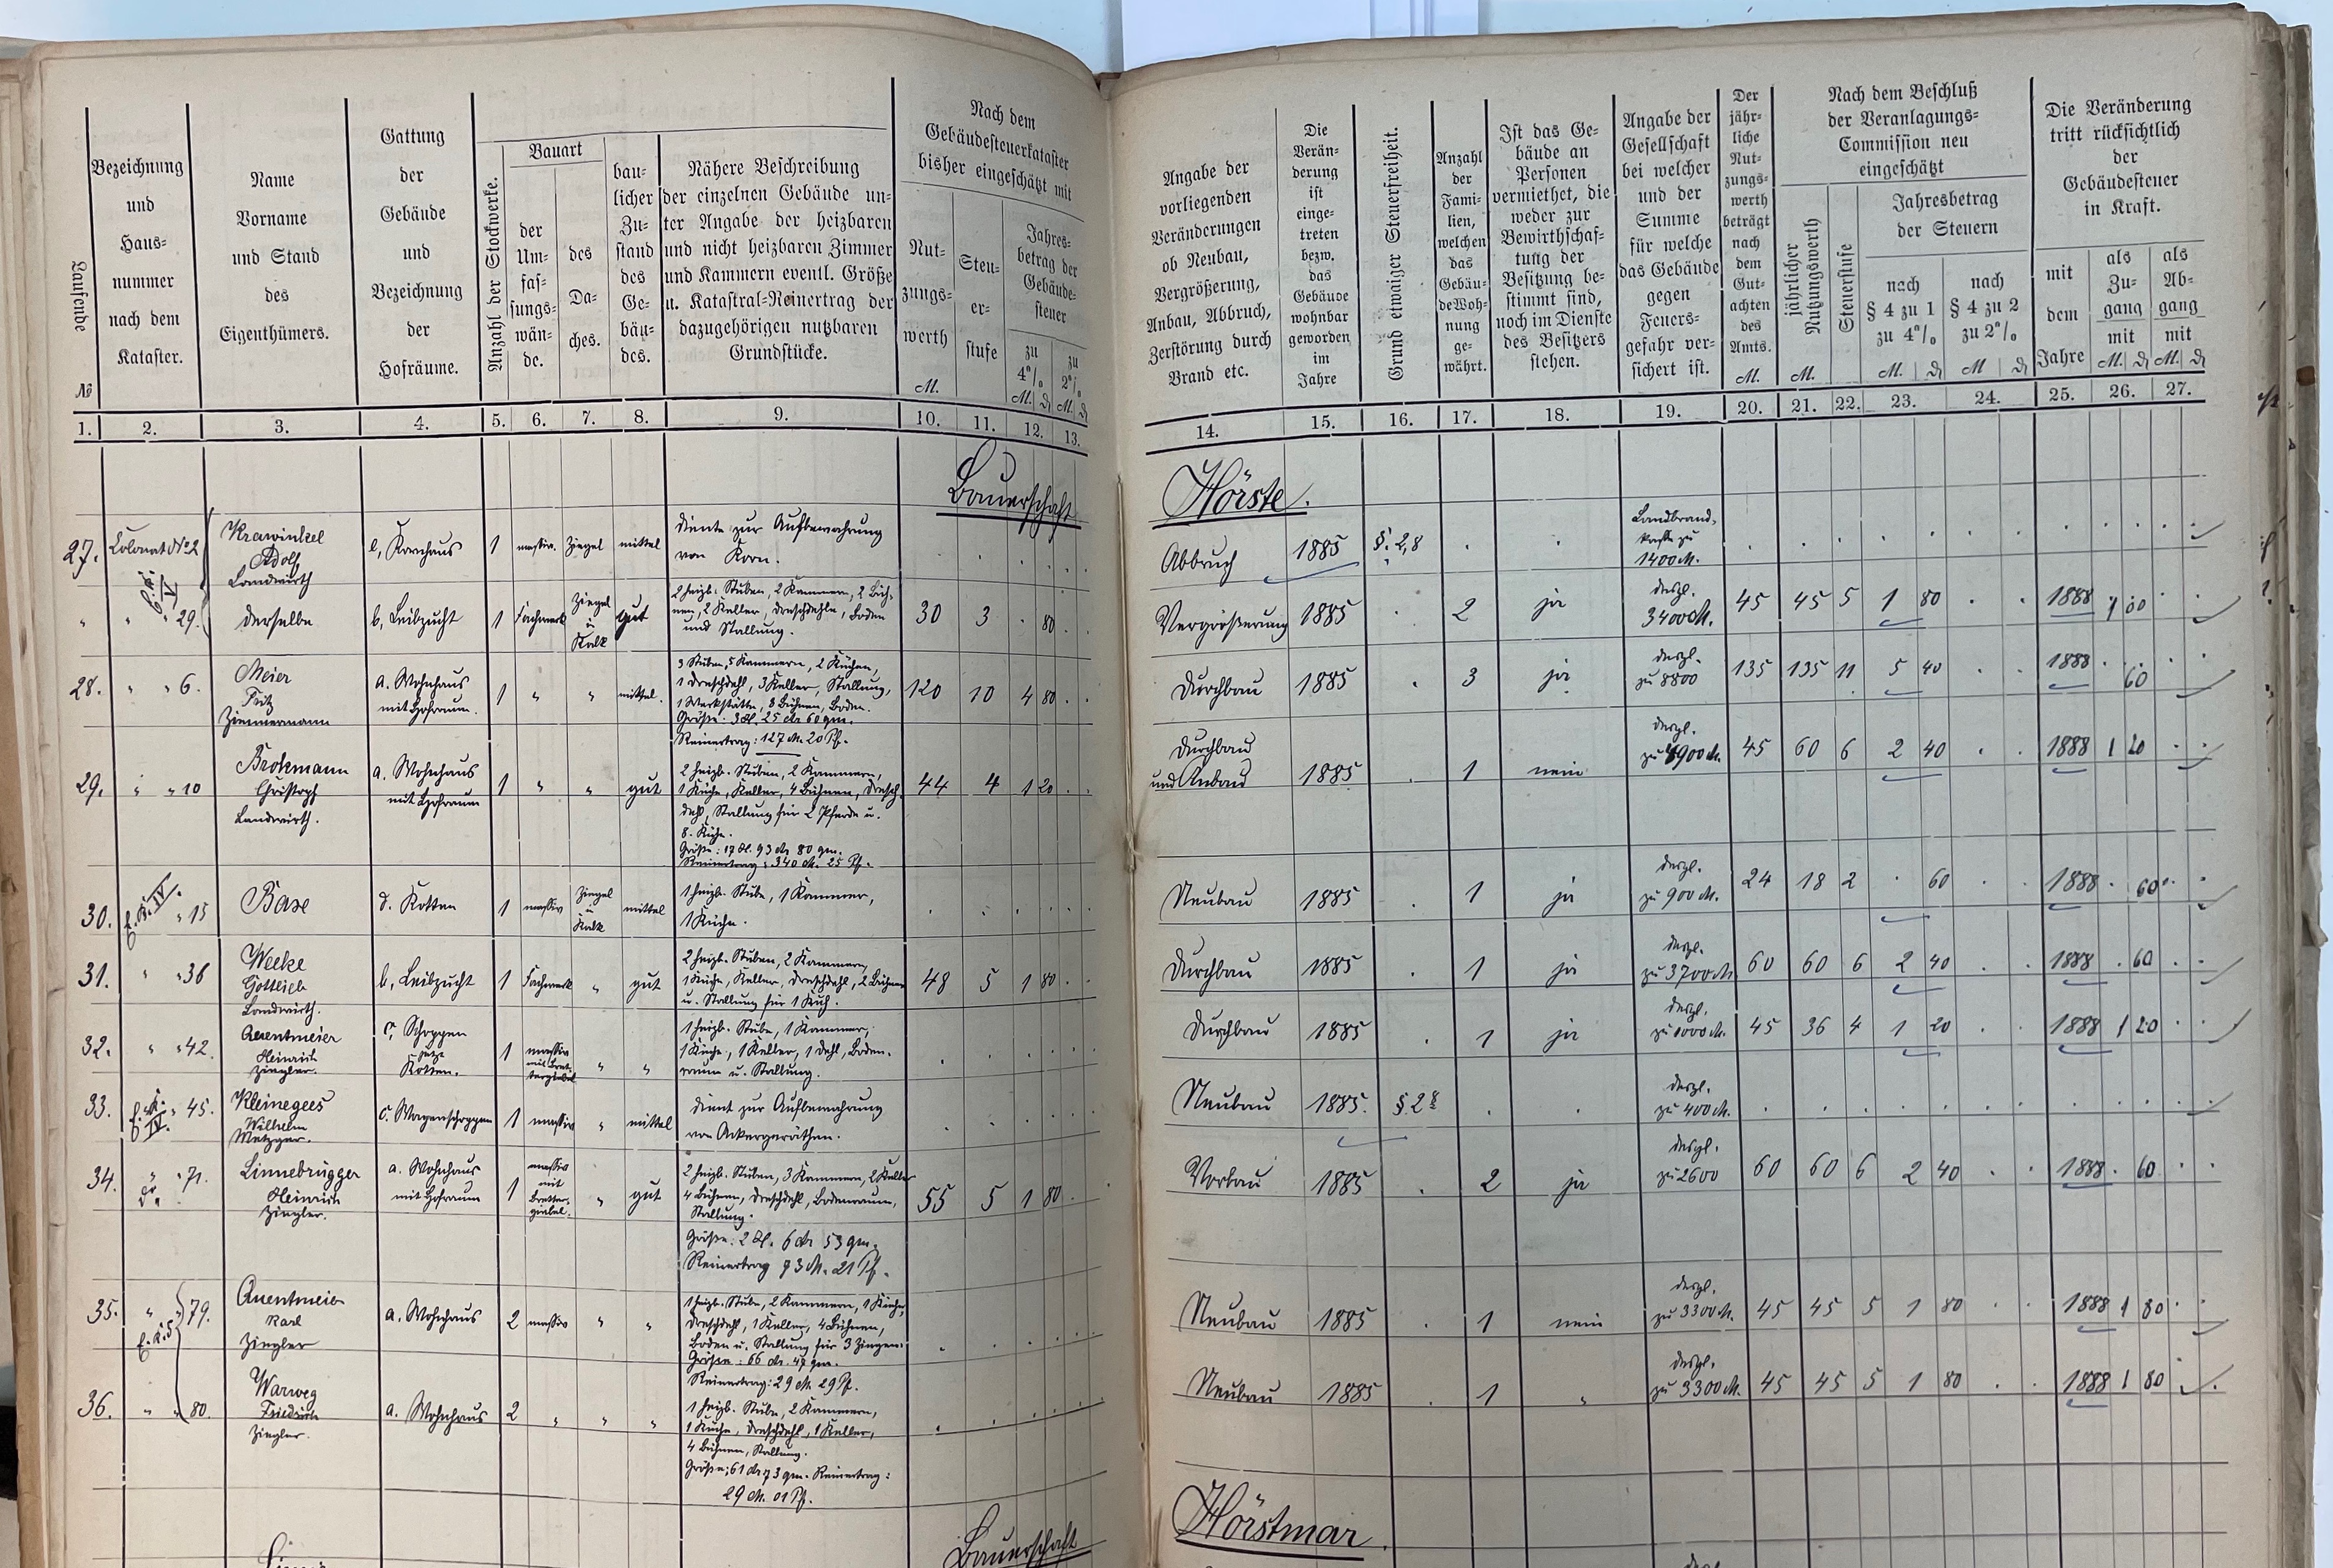 Laufende
№
Bezeichnung
und
Haus-
nummer
nach dem
Kataster.
Name
Vorname
und Stand
des
Eigenthümers.
Gattung
der
Gebäude
und
Bezeichnung
der
Hofräume.
Anzahl der Stockwerke.
Bauart
der
Um-
fas-
sungs-
wän-
de.
des
Da-
ches.
bau-
licher
Zu-
stand
des
Ge-
bäu-
des.
Nähere Beschreibung
der einzelnen Gebäude un-
ter Angabe der heizbaren
und nicht heizbaren Zimmer
und Kammern eventl. Größe
u. Katastral-Reinertrag der
dazugehörigen nutzbaren
Grundstücke.
Nach dem
Gebäudesteuerkataster
bisher eingeschätzt mit
Nut-
zungs-
werth
M.
Steu-
er-
stufe
Jahres-
betrag der
Gebäude-
steuer
zu
4%
M. d
zu
2%
M. d
1. 2. 3. 4. 5. 6. 7. 8. 9. 10. 11. 12. 13.
Bauerschaft
27. Colonat No 2 Krawinkel e, Kornhaus 1 massiv. Ziegel mittel diente zur Aufbewahrung
Adolf von Korn.
Landwirth
" " " 29. derselbe b, Leibzucht 1 Fachwerk Ziegel gut 2 heizb. Stuben, 2 Kammern, 2 Büh- 30 3 . 80
u nen, 2 Keller, Dreschdehle, Boden
Kalk und Stallung.
28. " " 6. Meier a. Wohnhaus 1 " " mittel. 3 Stuben, 5 Kammern, 2 Küchen, 120 10 4 80
Fritz mit Hofraum. 1 Dreschdehl, 3 Keller, Stallung,
Zimmermann 1 Werkstätte, 3 Bühnen, Boden.
Größe: 3 H. 25 Ar 60 qm.
Reinertrag: 127 M. 20 Pf.
29. " " 10 Brokmann a. Wohnhaus 1 " " gut 2 heizb. Stuben, 2 Kammern, 44 4 1 20
Christoph mit Hofraum 1 Küche, Keller, 4 Bühnen, Dresch-
Landwirth. dehl, Stallung für 2 Pferde u.
8. Kühe.
Größe: 17 H. 93 Ar 80 qm.
Reinertrag: 340 M. 25 Pf.
30. " 15 Base d. Kotten 1 massiv Ziegel mittel 1 heizb. Stube, 1 Kammer,
u
Kalk 1 Küche.
31. " " 36 Weeke b, Leibzucht 1 Fachwerk " gut 2 heizb. Stuben, 2 Kammern, 48 5 1 80
Gottlieb 1 Küche, Keller, Dreschdehl, 2 Bühnen
Landwirth. u. Stallung für 1 Kuh.
32. " " 42. Quentmeier c, Schoppen 1 massiv " " 1 heizb. Stube, 1 Kammer,
Heinrich jetzt mit Bret- 1 Küche, 1 Keller, 1 Dehl, Boden-
Ziegler. Kotten. tergiebel raum u. Stallung.
33. " 45. Kleinegees c. Wagenschoppen 1 massiv " mittel dient zur Aufbewahrung
Wilhelm von Ackergeräthen.
Metzger.
34. " " 71. Linnebrügger a. Wohnhaus 1 massiv " gut 2 heizb. Stuben, 3 Kammern, 2 Keller 55 5 1 80
Heinrich mit Hofraum mit 4 Bühnen, Dreschdehl, Bodenraum,
Ziegler. Bretter- Stallung.
giebel.
Größe: 2 H. 6 Ar 53 qm.
Reinertrag 73 M. 21 Pf.
35. " " 79. Quentmeier a. Wohnhaus 2 massiv " " 1 heizb. Stube, 2 Kammern, 1 Küche,
Karl Dreschdehl, 1 Keller, 4 Bühnen,
Ziegler Boden u. Stallung für 3 Ziegen.
Größe: 66 Ar. 47 qm.
Reinertrag: 29 M. 29 Pf.
36. " " 80. Warweg a. Wohnhaus 2 " " " 1 heizb. Stube, 2 Kammern,
Friedrich 1 Küche, Dreschdehl, 1 Keller,
Ziegler. 4 Bühnen, Stallung.
Größe: 61 Ar 73 qm. Reinertrag:
29 M. 01 Pf.
Bauerschaft
Angabe der
vorliegenden
Veränderungen
ob Neubau,
Vergrößerung,
Anbau, Abbruch,
Zerstörung durch
Brand etc.
Die
Verän-
derung
ist
einge-
treten
bezw.
das
Gebäude
wohnbar
geworden
im
Jahre
Grund etwaiger Steuerfreiheit.
Anzahl
der
Fami-
lien,
welchen
das
Gebäu-
de Woh-
nung
ge-
währt.
Ist das Ge-
bäude an
Personen
vermiethet, die
weder zur
Bewirthschaf-
tung der
Besitzung be-
stimmt sind,
noch im Dienste
des Besitzers
stehen.
Angabe der
Gesellschaft
bei welcher
und der
Summe
für welche
das Gebäude
gegen
Feuers-
gefahr ver-
sichert ist.
Der
jähr-
liche
Nut-
zungs-
werth
beträgt
nach
dem
Gut-
achten
des
Amts.
M.
Nach dem Beschluß
der Veranlagungs-
Commission neu
eingeschätzt
jährlicher
Nutzungswerth
M.
Steuerstufe
Jahresbetrag
der Steuern
nach
§ 4 zu 1
zu 4%
M. d
nach
§ 4 zu 2
zu 2%
M d
Die Veränderung
tritt rücksichtlich
der
Gebäudesteuer
in Kraft.
mit
dem
Jahre
als
Zu-
gang
mit
M. d
als
Ab-
gang
mit
M. d
14. 15. 16. 17. 18. 19. 20. 21. 22. 23. 24. 25. 26. 27.
Hörste.
Abbruch 1885 §. 2,8 Landbrand-
kasse zu
1400 M.
Vergrößerung 1885 2 ja desgl. 45 45 5 1 80 1888 1 00
3400 M.
Durchbau 1885 3 ja desgl. 135 135 11 5 40 1888 . 60
zu 8800
Durchbau
und Anbau 1885 1 nein desgl. 45 60 6 2 40 1888 1 20
zu 4900 M.
Neubau 1885 1 ja desgl. 24 18 2 . 60 1888 . 60
zu 900 M.
Durchbau 1885 1 ja desgl. 60 60 6 2 40 1888 . 60
zu 3700 M
Durchbau 1885 1 ja desgl. 45 36 4 1 20 1888 1 20
zu 1000 M.
Neubau 1885. § 2 8 desgl.
zu 400 M.
Vorbau 1885 2 ja desgl. 60 60 6 2 40 1888 . 60
zu 2600
Neubau 1885 1 nein desgl. 45 45 5 1 80 1888 1 80
zu 3300 M.
Neubau 1885 1 " desgl. 45 45 5 1 80 1888 1 80
zu 3300 M.
Hörstmar.